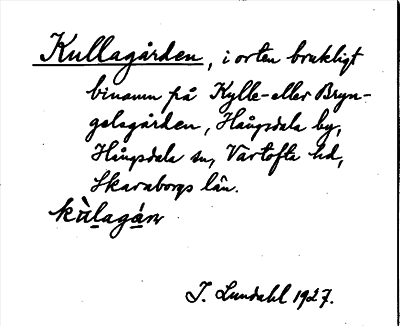 Kullagården, i orten brukligt
binamn på Kylle- eller Bryn-
gelsgården, Hångsdala by,
Hångsdala sn, Vartofta hd,
Skaraborgs län.
kùlagán
J. Lundahl 1927.